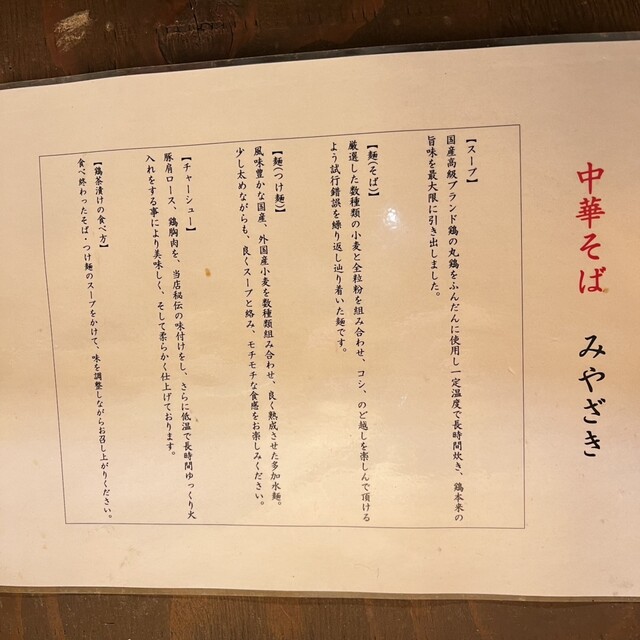 中華そば みやざき
【スープ】
国産高級ブランド鶏の丸鶏をふんだんに使用し一定温度で長時間炊き、鶏本来の
旨味を最大限に引き出しました。
【麺(そば)】
厳選した数種類の小麦と全粒粉を組み合わせ、コシ、のど越しを楽しんで頂ける
よう試行錯誤を繰り返し辿り着いた麺です。
【麺(つけ麺)】
風味豊かな国産、外国産小麦を数種類組み合わせ、良く熟成させた多加水麺。
少し太めながらも、良くスープと絡み、モチモチな食感をお楽しみください。
【チャーシュー】
豚肩ロース、鶏胸肉を、当店秘伝の味付けをし、さらに低温で長時間ゆっくり火
入れをする事により美味しく、そして柔らかく仕上げております。
【鶏茶漬けの食べ方】
食べ終わったそば・つけ麺のスープをかけて、味を調整しながらお召し上がりください。